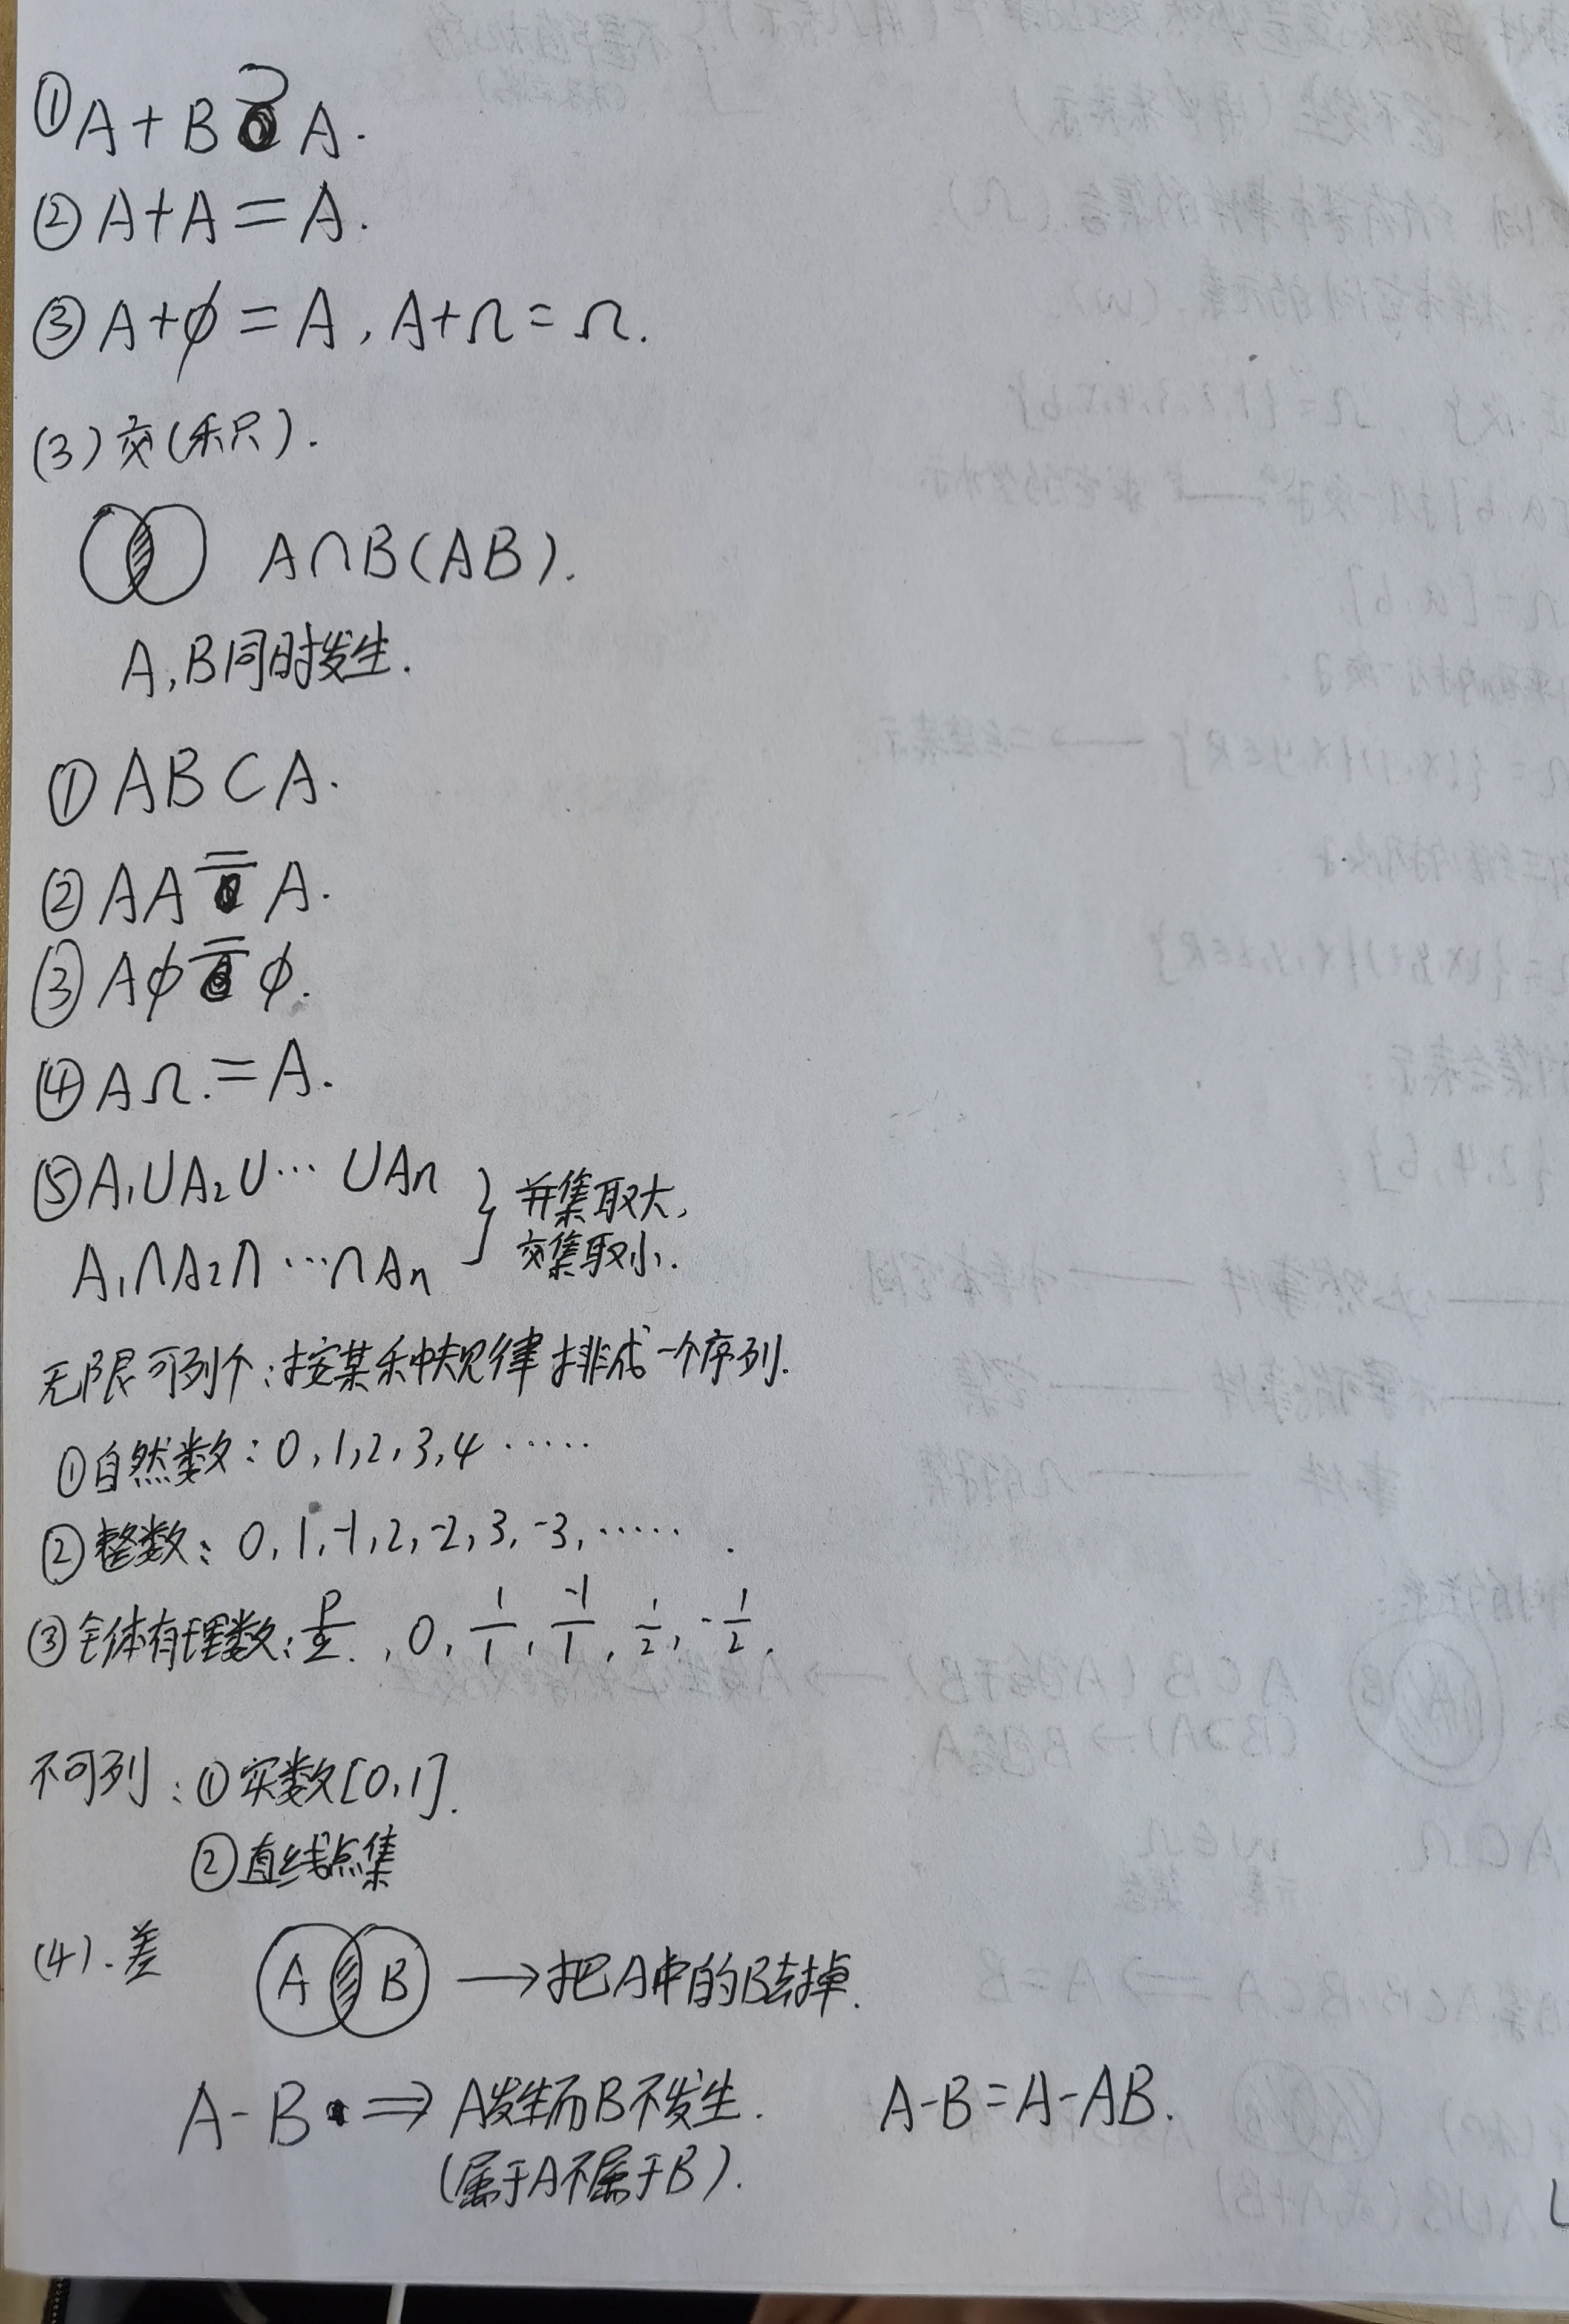 ①A+B⊃A.
②A+A=A.
③A+φ=A,A+Ω=Ω.
(3)交(积).
A∩B(AB).
A,B同时发生.
①AB⊂A.
②AA=A.
③Aφ=φ.
④AΩ.=A.
⑤A₁∪A₂∪…∪Aₙ
A₁∩A₂∩…∩Aₙ
} 并集取大,
交集取小.
无限可列个:按某种规律排成一个序列.
①自然数:0,1,2,3,4……
②整数:0,1,-1,2,-2,3,-3,…….
③全体有理数:p/q.,0,1/1,-1/1,1/2,-1/2.
不可列:①实数[0,1].
②直线点集
(4).差 A B →把A中的B去掉.
A-B⇒A发生而B不发生. A-B=A-AB.
(属于A不属于B).